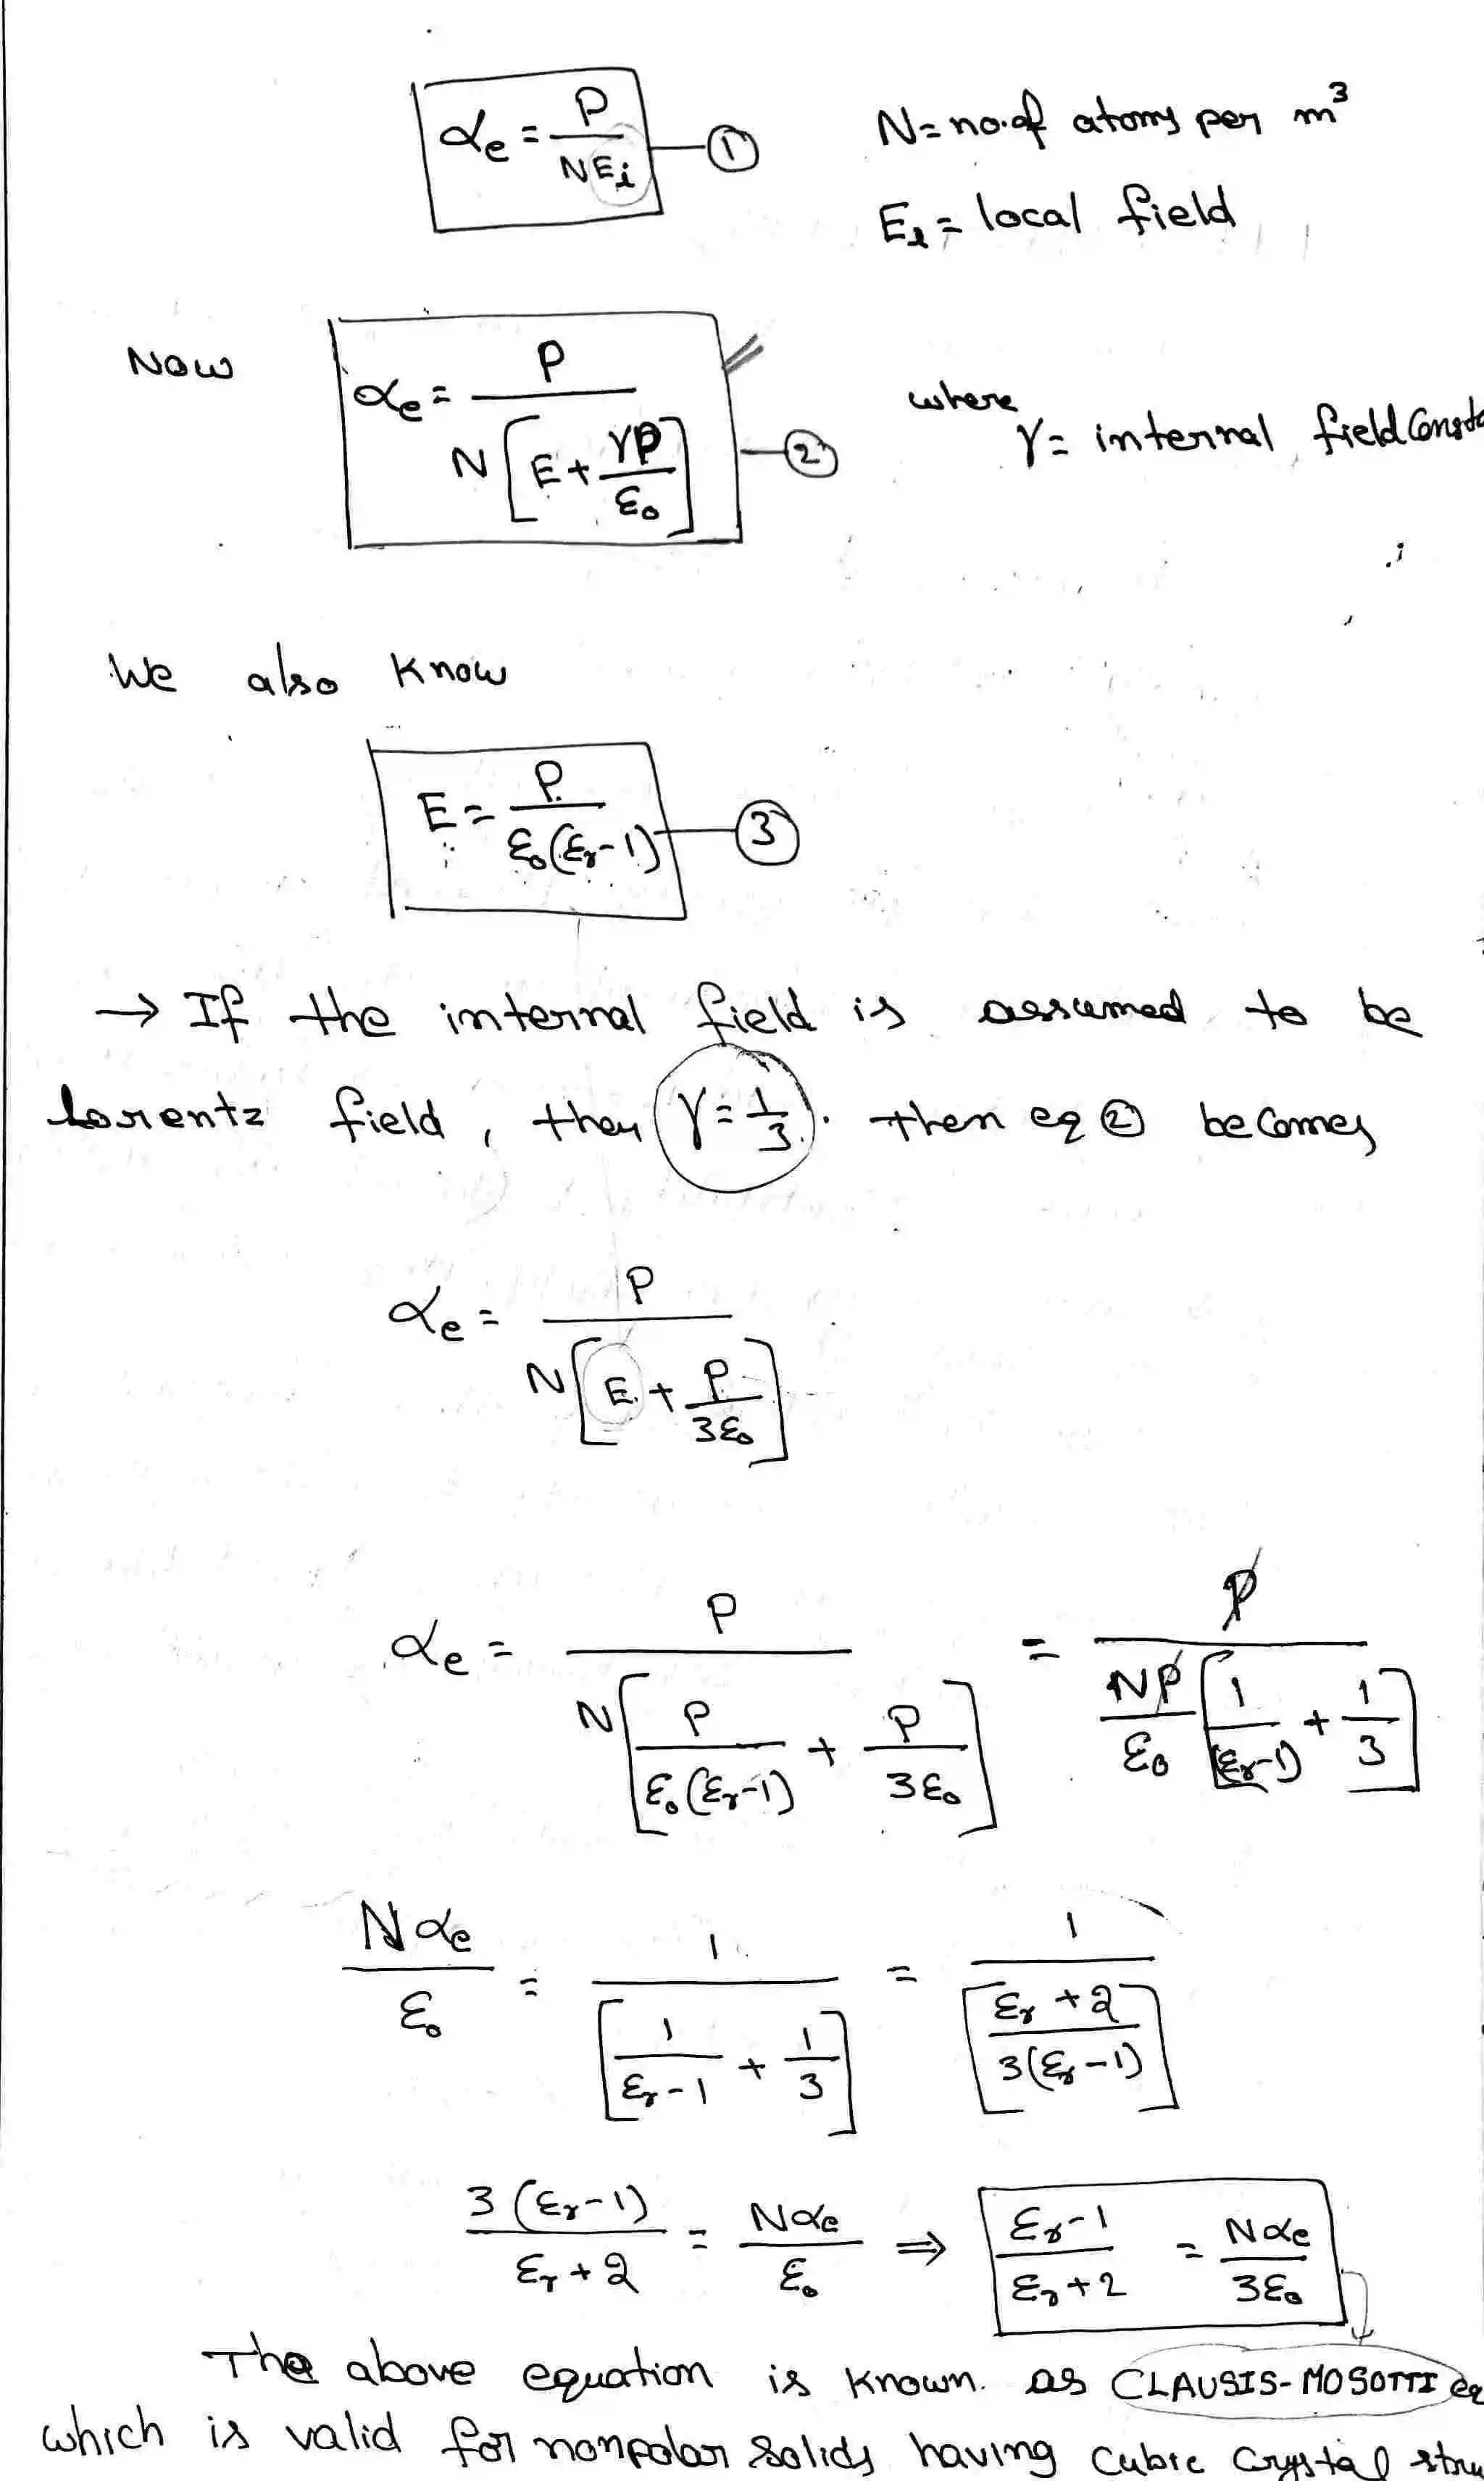 αe = P / NEi —①
N = no. of atoms per m³
Ei = local field
Now αe = P / N[E + γP/ε₀] —②
where γ = internal field Const
We also know
E = P / ε₀(εr-1) —③
→ If the internal field is assumed to be
Lorentz field, then γ = 1/3. then eq ② becomes
αe = P / N[E + P/3ε₀]
αe = P / N[P/ε₀(εr-1) + P/3ε₀] = P / (NP/ε₀)[1/(εr-1) + 1/3]
Nαe/ε₀ = 1 / [1/εr-1 + 1/3] = 1 / [εr+2 / 3(εr-1)]
3(εr-1) / εr+2 = Nαe/ε₀ ⇒ εr-1 / εr+2 = Nαe / 3ε₀
The above equation is known. as CLAUSIS-MOSOTTI eq
which is valid for nonpolar Solids having Cubic Crystal stru